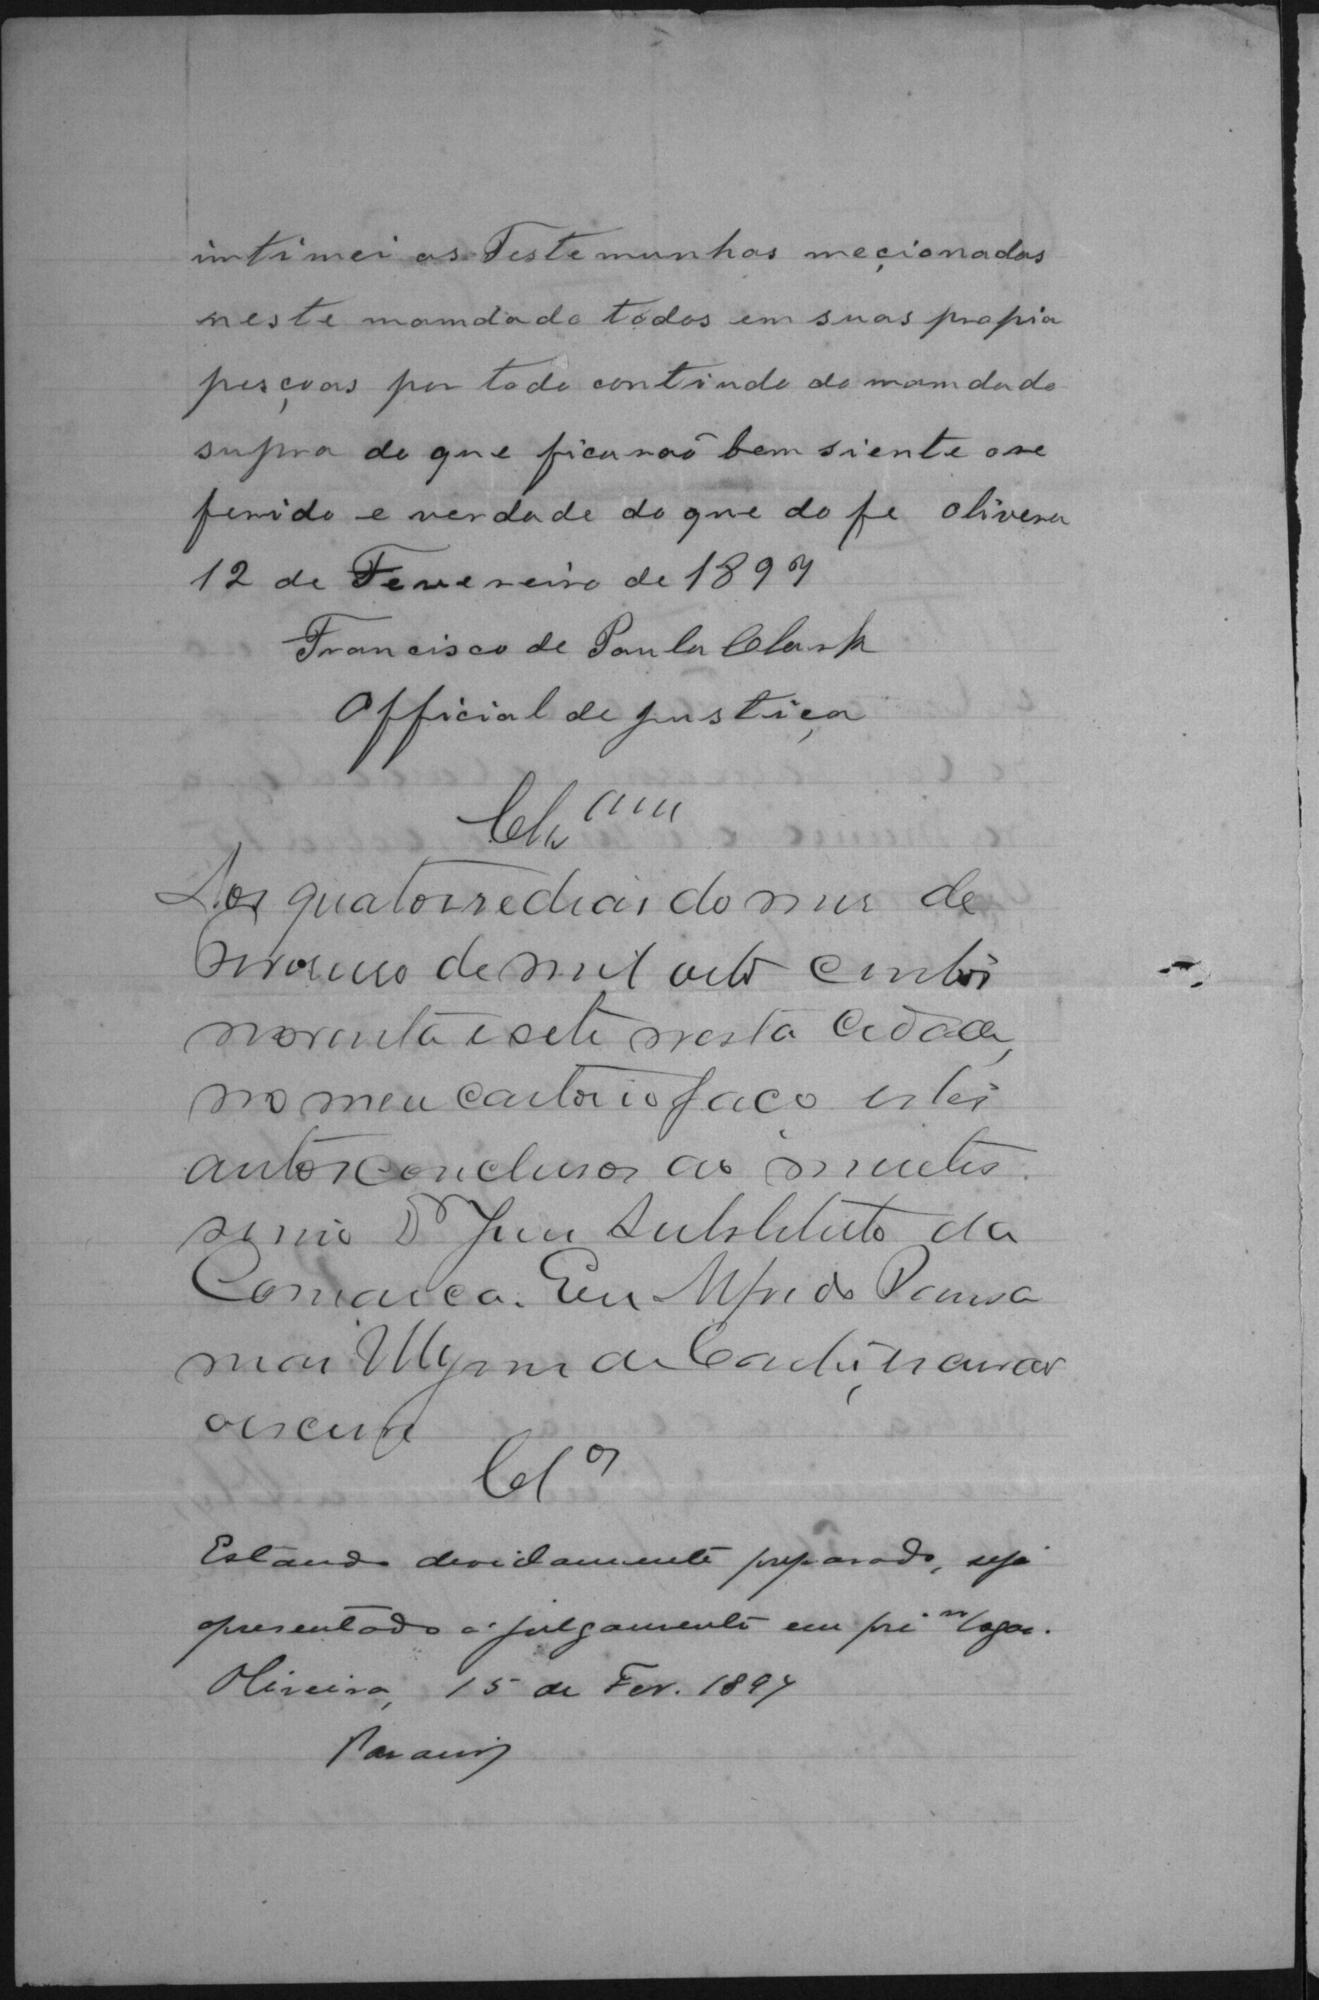 intimei as Testemunhas meçionadas
neste mamdado todos em suas propia
pesçoas por todo contiudo do mamdado
supra do que ficaraõ bem siente o re
ferido e verdade do que do fe Olivera
12 de Fevereiro de 1897
Francisco de Paula Clark
Official de justiça
Clz.am
Aos quatorze dias do mes de
Fevereiro de mil oito centos
noventa e sete nesta Cidade,
no meu cartorio faço estes
autos conclusos ao meretis
simo Dr Juiz Substituto da
Comarca. Eu Alfredo
de
o escrevi
Cl.os
Estando devidamente preparado, seja
apresentado a julgamento em pri.ro logar.
Oliveira, 15 de Fev. 1897